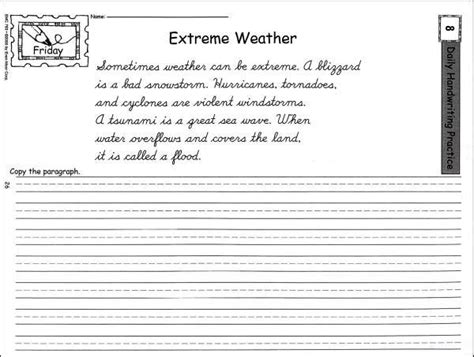 Name:
Friday
Extreme Weather
Sometimes weather can be extreme. A blizzard
is a bad snowstorm. Hurricanes, tornadoes,
and cyclones are violent windstorms.
A tsunami is a great sea wave. When
water overflows and covers the land,
it is called a flood.
8
Daily Handwriting Practice
Copy the paragraph.
26